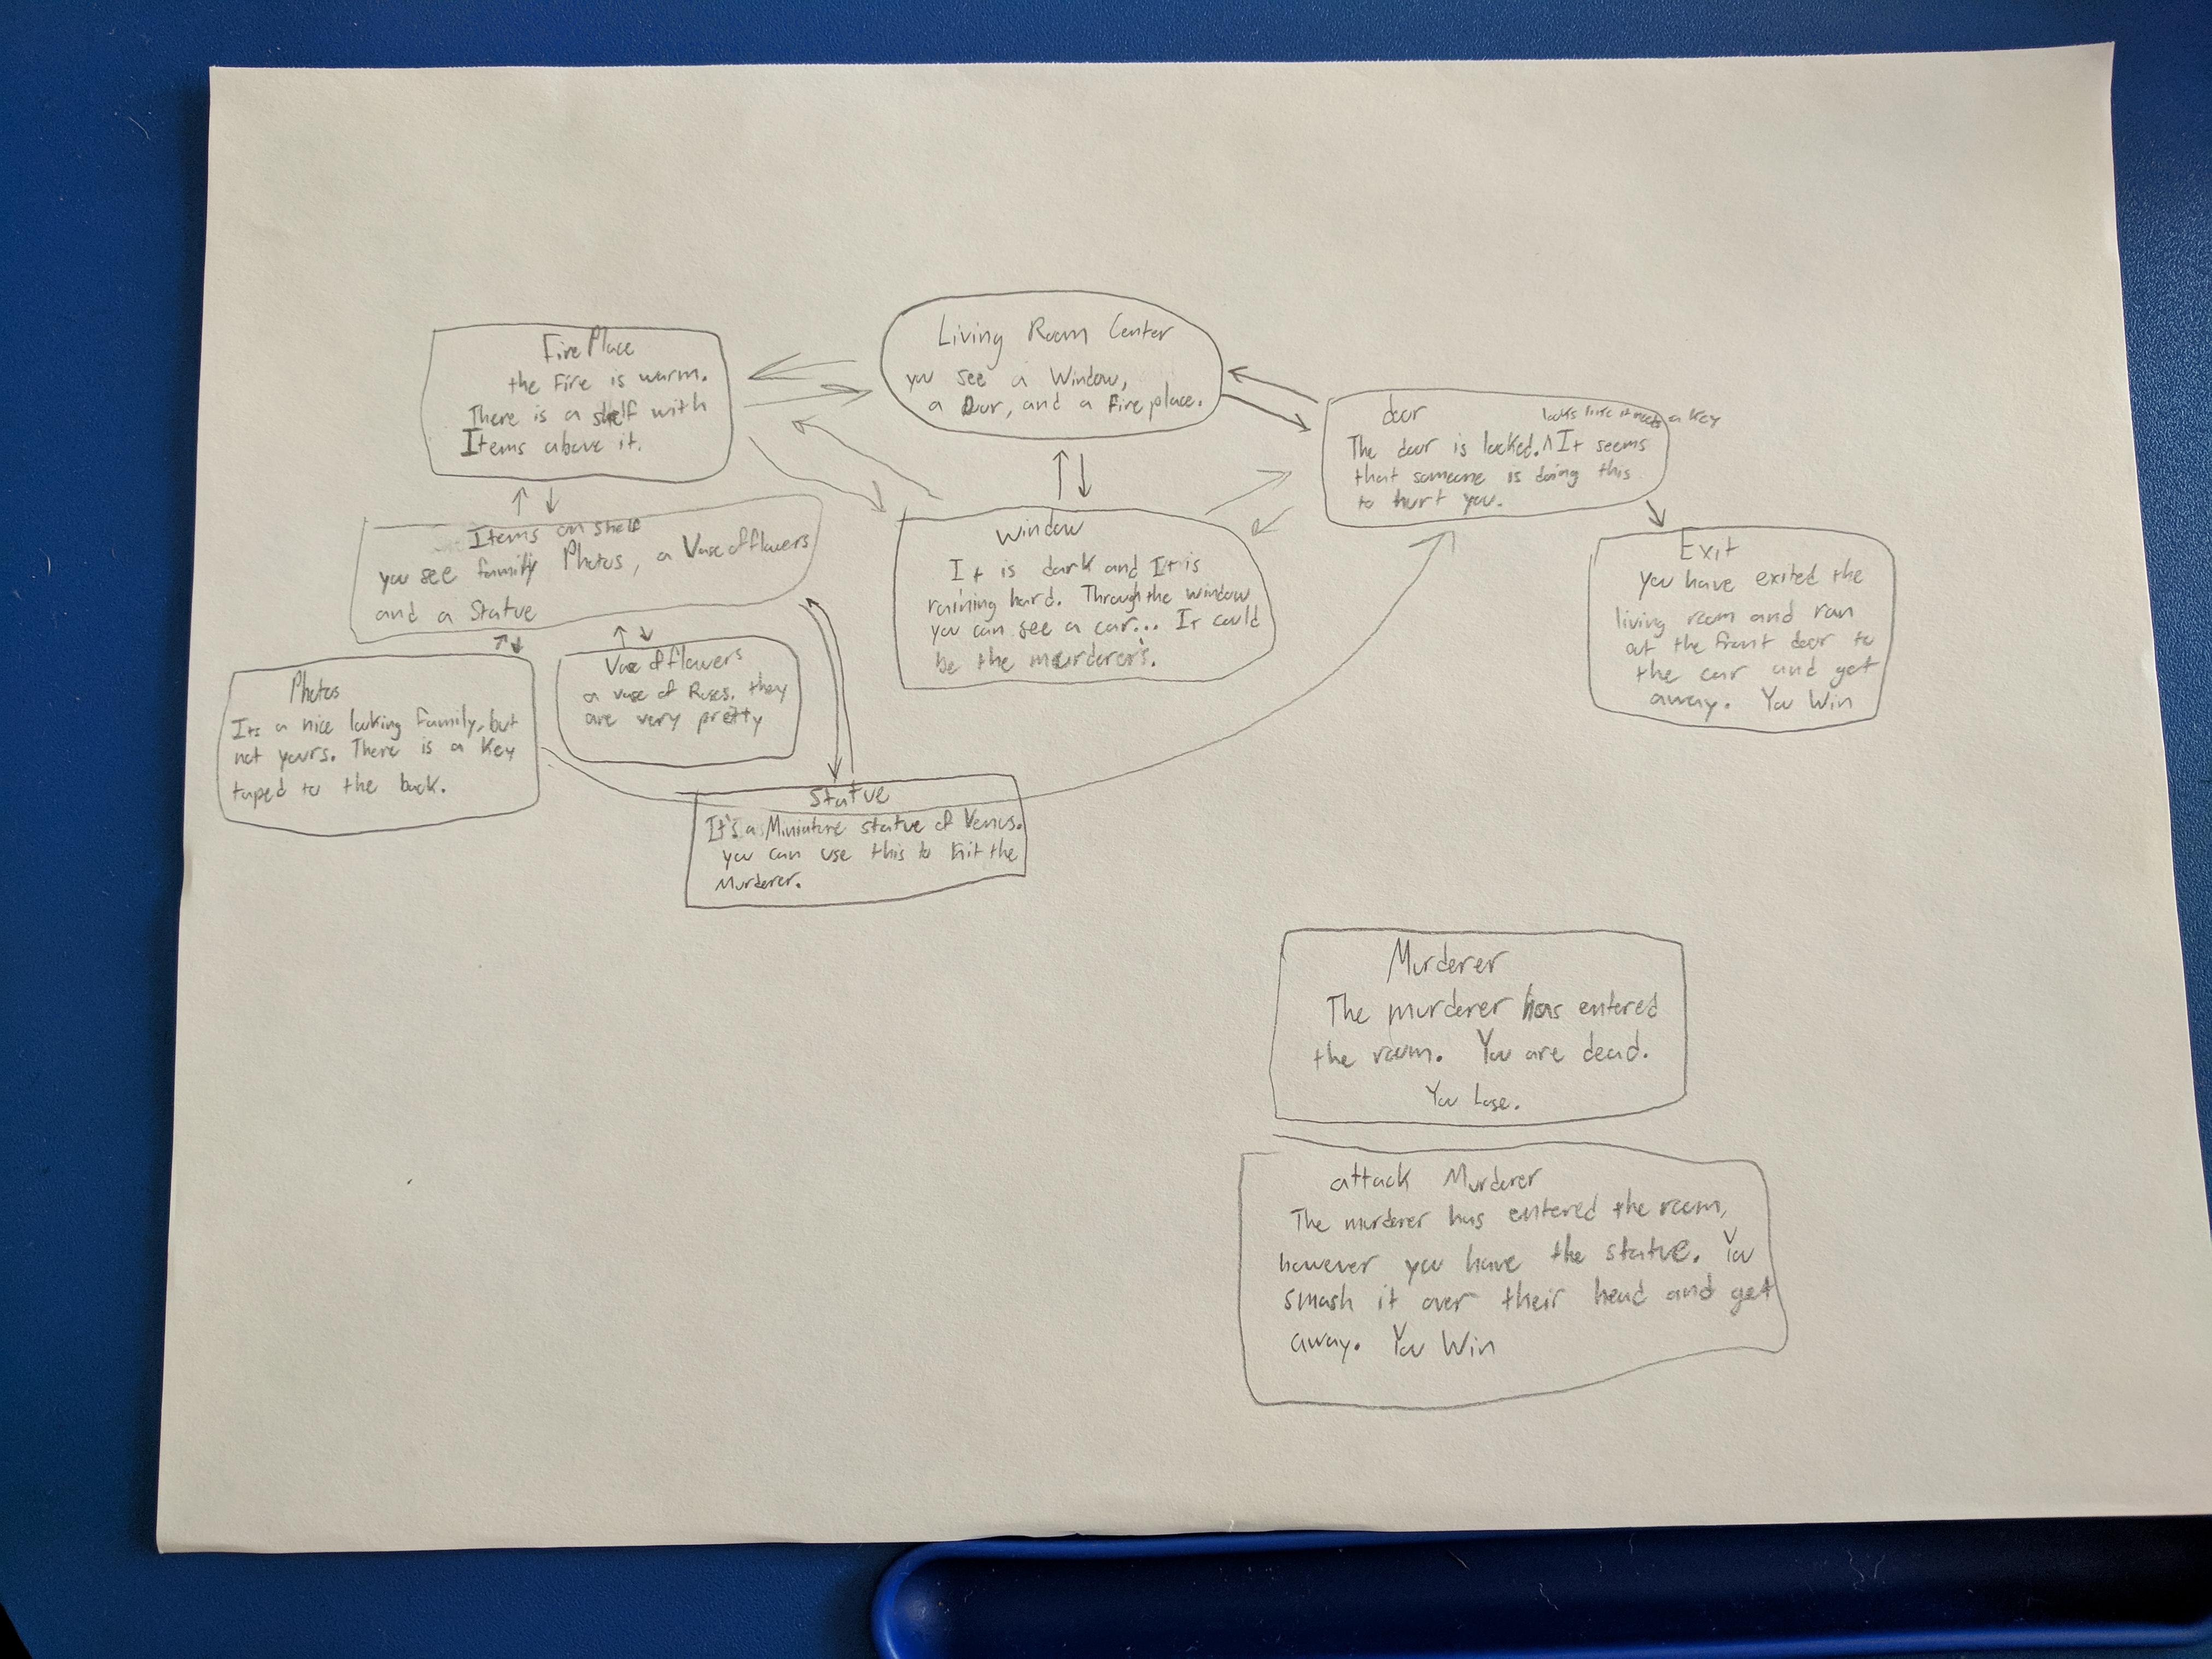 Living Room Center
you see a Window,
a Door, and a Fireplace.
Fire Place
the Fire is warm.
There is a shelf with
Items above it.
door
looks like it needs a Key
The door is locked. ^ It seems
that someone is doing this
to hurt you.
Items on shelf
you see family Photos, a Vase of flowers
and a Statue
Window
It is dark and It is
raining hard. Through the window
you can see a car... It could
be the murderer's.
Exit
you have exited the
living room and ran
out the front door to
the car and get
away. You Win
Photos
Its a nice looking family, but
not yours. There is a Key
taped to the back.
Vase of flowers
a vase of Roses. they
are very pretty
Statue
It's a Miniature statue of Venus.
you can use this to hit the
Murderer.
Murderer
The murderer has entered
the room. You are dead.
You Lose.
attack Murderer
The murderer has entered the room,
however you have the statue. You
smash it over their head and get
away. You Win